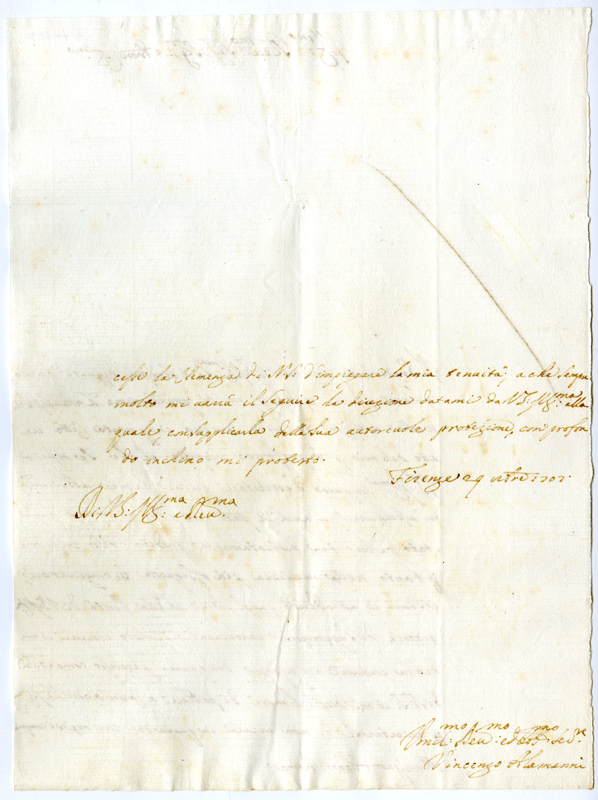 cesse la Clemenza di N. S. d'impiegare la mia tenuità, a che sempre
molto mi varrà il seguire la direzione datami da V. S. Ill:ma alla
quale, con supplicarla della sua autorevole protezione, con profon
do inchino mi protesto.
Firenze 29
Di V. S. Ill:ma e Rev:ma
Um:mo Dev:mo ed Obb:mo Se:re
Vincenzo Alamanni